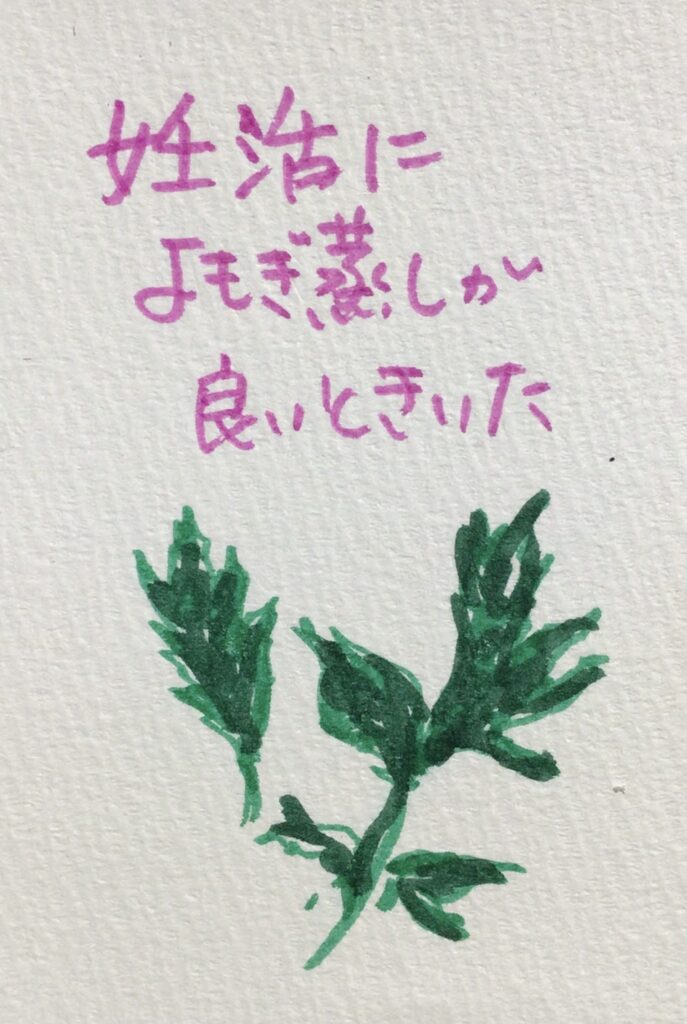 妊活に
よもぎ蒸しが
良いときいた